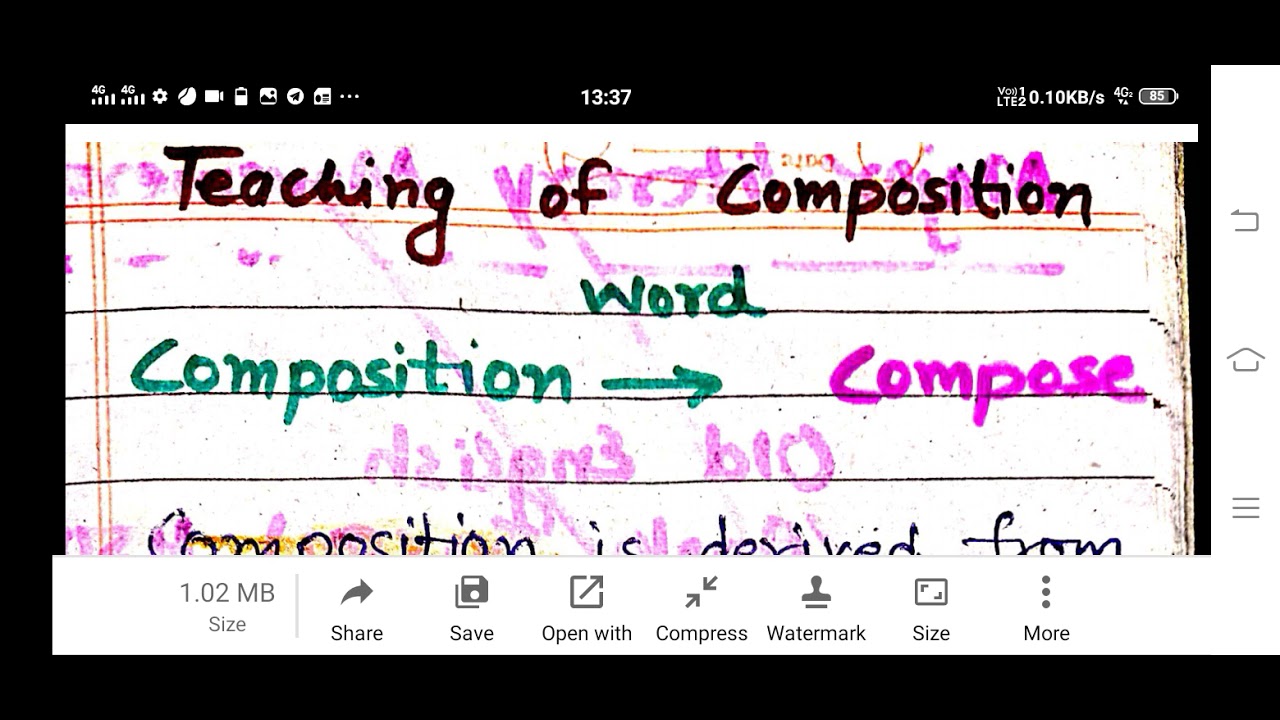 4G 4G 13:37 Vo)) 1 LTE2 0.10KB/s 4G2 85
Teaching of Composition
Word
Composition → Compose
Old English
Composition is derived from
1.02 MB
Size
Share Save Open with Compress Watermark Size More